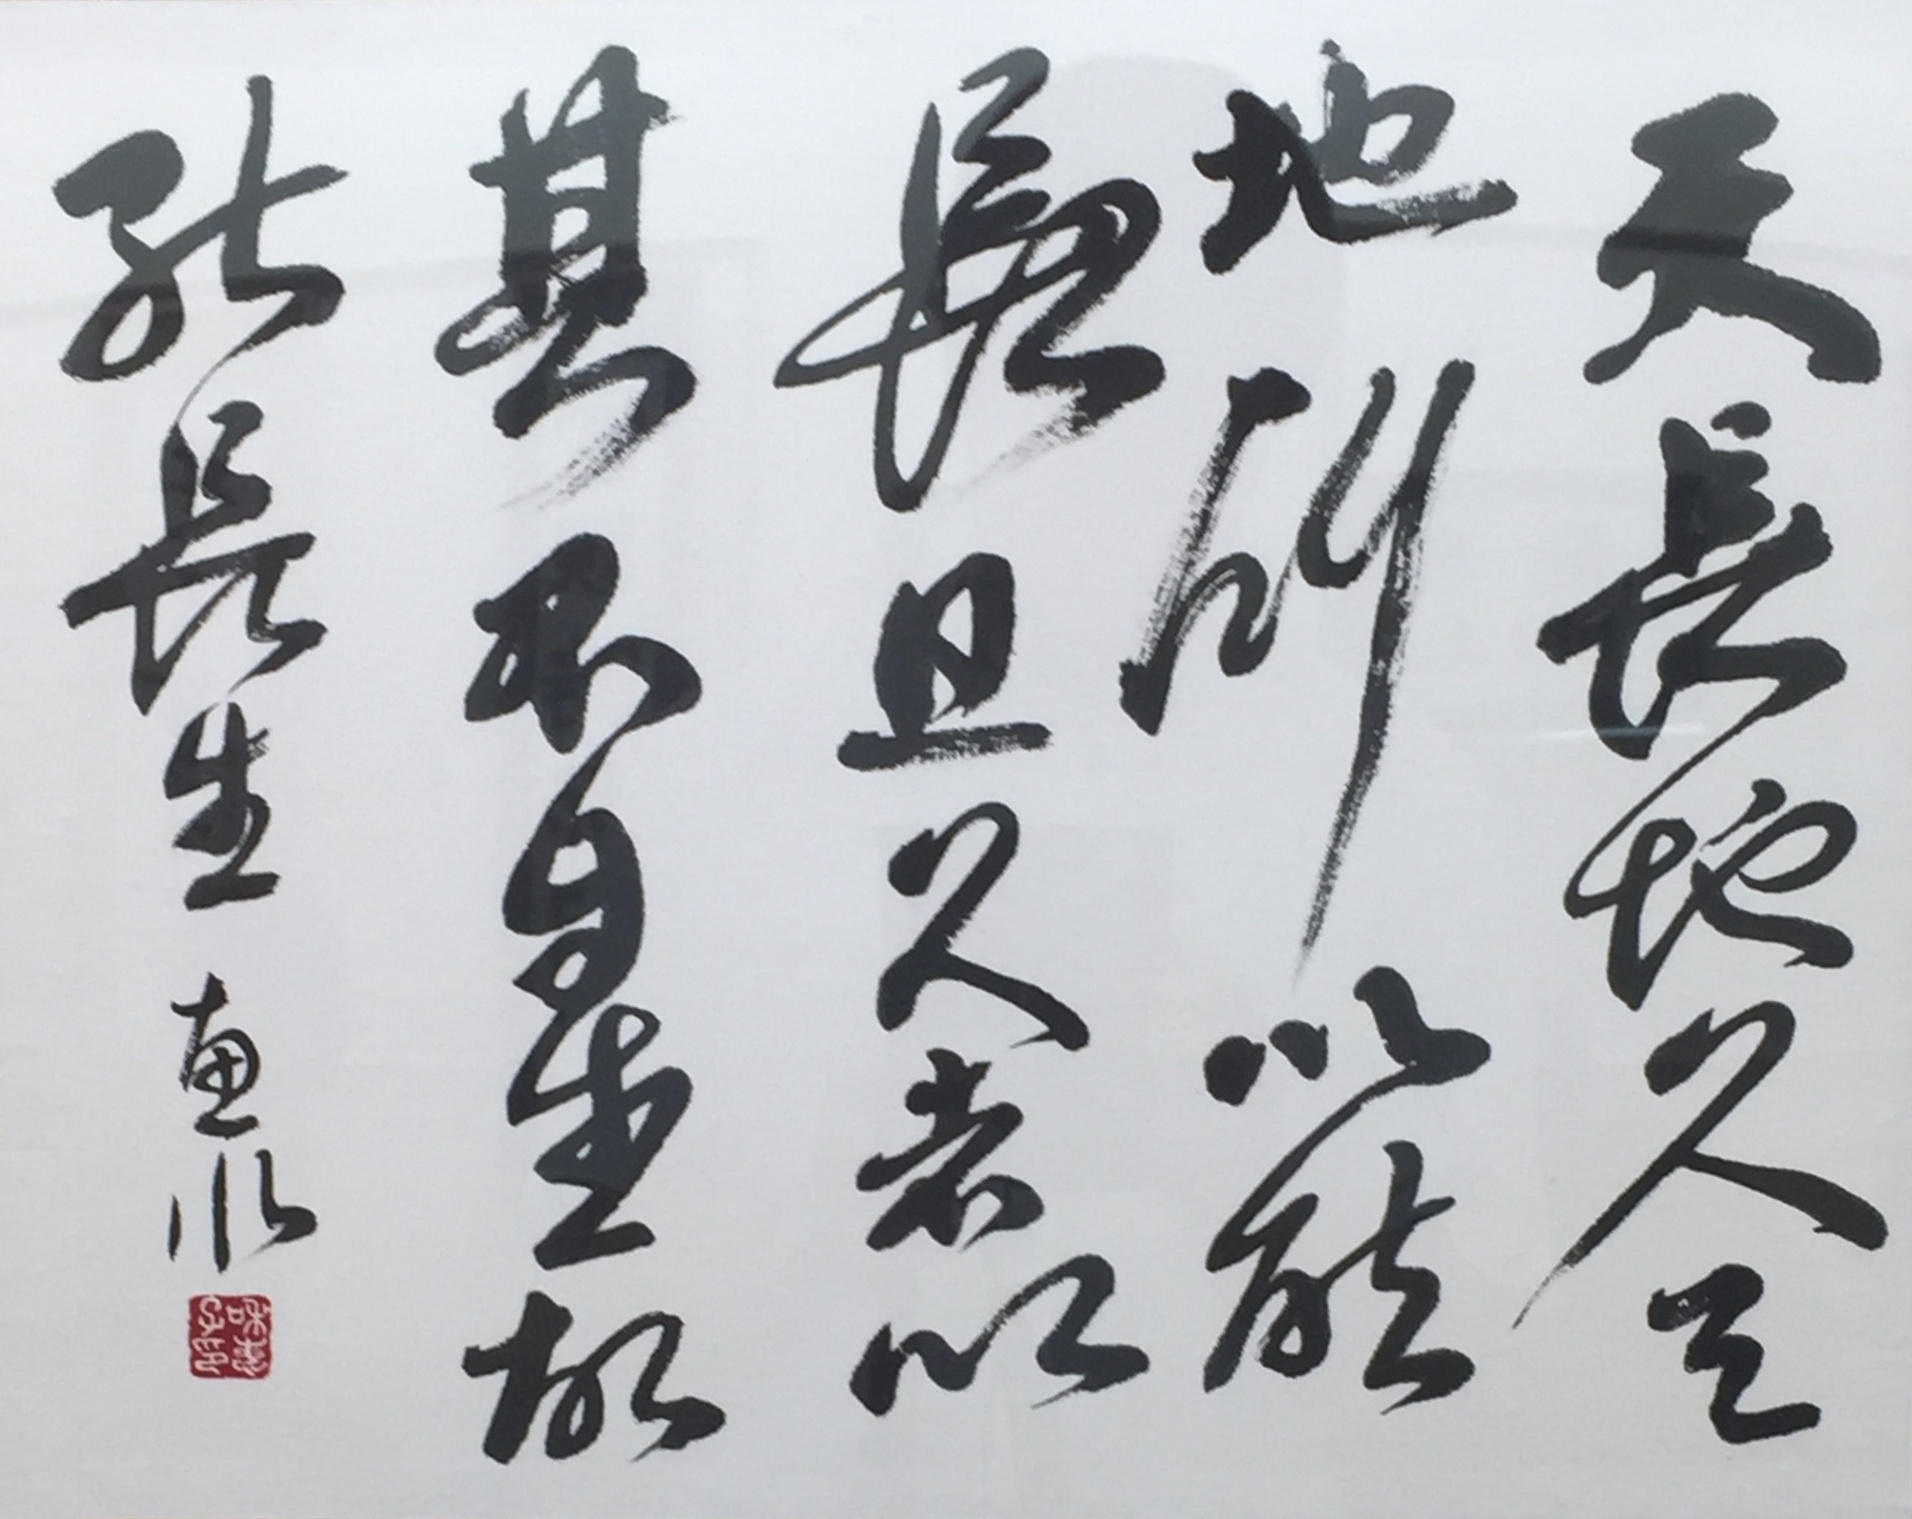 天長地久天
地所以能
長且久者以
其不自生故
能長生 恵水